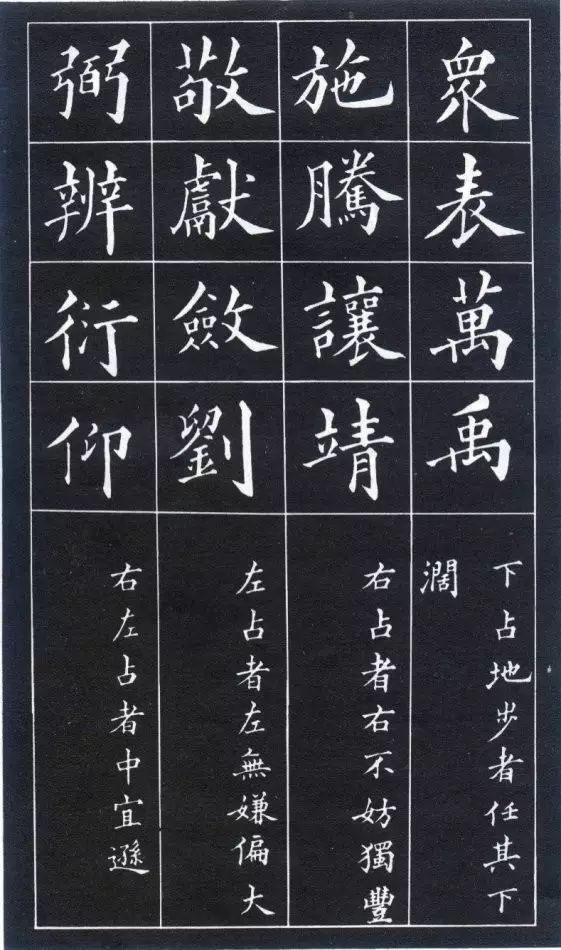 衆表萬禹
下占地步者任其下
濶
施騰讓靖
右占者右不妨獨豐
敬獻斂劉
左占者左無嫌偏大
弼辨衍仰
右左占者中宜遜